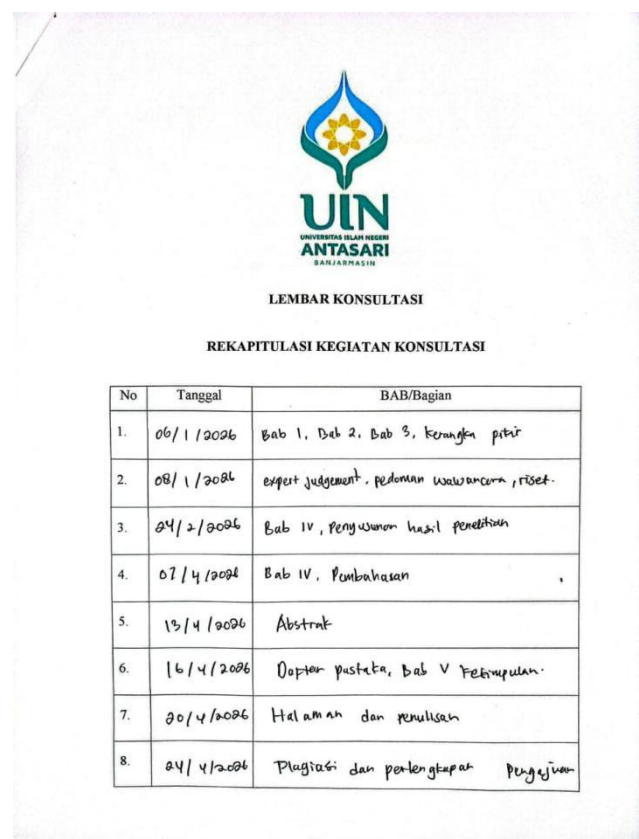 UIN
UNIVERSITAS ISLAM NEGERI
ANTASARI
BANJARMASIN
LEMBAR KONSULTASI
REKAPITULASI KEGIATAN KONSULTASI
No Tanggal BAB/Bagian
1. 06/1/2026 Bab 1, Bab 2, Bab 3, kerangka pikir
2. 08/1/2026 expert judgement, pedoman wawancara, riset.
3. 24/2/2026 Bab IV, Penyusunan hasil penelitian
4. 07/4/2026 Bab IV, Pembahasan
5. 13/4/2026 Abstrak
6. 16/4/2026 Daftar pustaka, Bab V Kesimpulan.
7. 20/4/2026 Halaman dan penulisan
8. 24/4/2026 Plagiasi dan perlengkapan Pengajuan